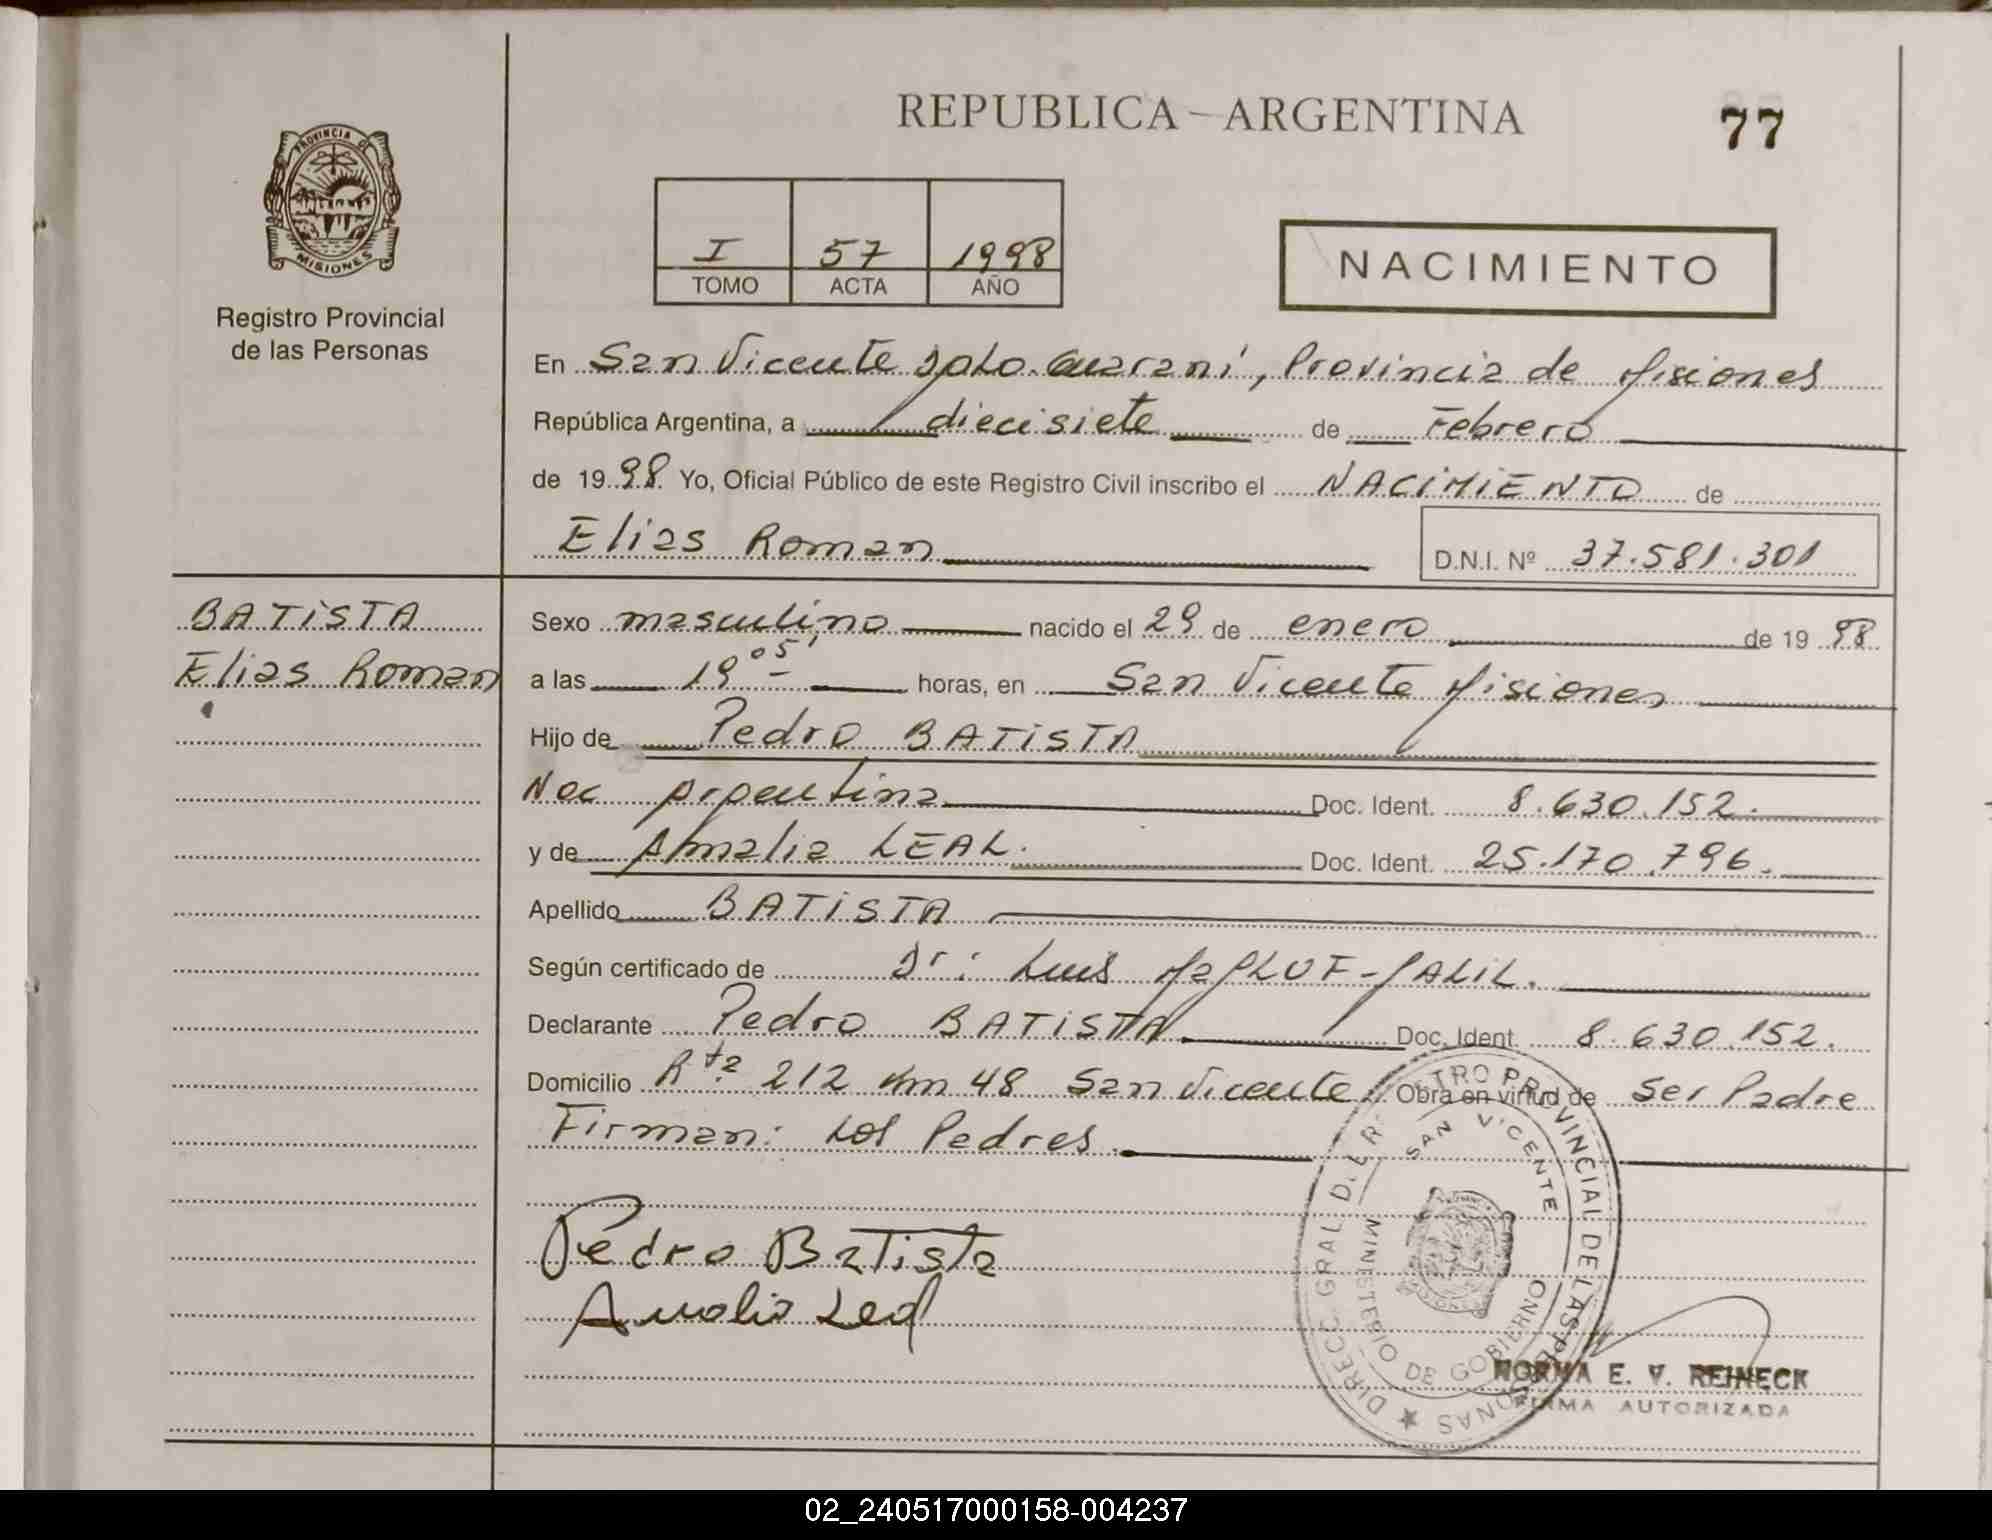 REPUBLICA - ARGENTINA
77
PROVINCIA DE
MISIONES
Registro Provincial
de las Personas
I 57 1998
TOMO ACTA AÑO
NACIMIENTO
En San Vicente Dpto. Guaraní, Provincia de Misiones
República Argentina, a diecisiete de Febrero
de 1998 Yo, Oficial Público de este Registro Civil inscribo el NACIMIENTO de
Elias Roman
D.N.I. Nº 37.581.301
BATISTA
Elias Roman
Sexo masculino nacido el 29 de enero de 1998
a las 19 05 horas, en San Vicente Misiones
Hijo de Pedro BATISTA
Nac Argentina Doc. Ident. 8.630.152.
y de Amalia LEAL. Doc. Ident. 25.170.796.
Apellido BATISTA
Según certificado de Dr: Luis
Declarante Pedro BATISTA Doc. Ident. 8.630.152.
Domicilio Rta 212 Km 48 San Vicente Obra en virtud de Ser Padre
Firman: Los Padres.
Pedro Batista
Amalia Leal
DIRECC. GRAL. DEL REGISTRO PROVINCIAL DE LAS PERSONAS
SAN VICENTE
MINISTERIO DE GOBIERNO
NORMA E. V. REINECK
FIRMA AUTORIZADA
02_240517000158-004237